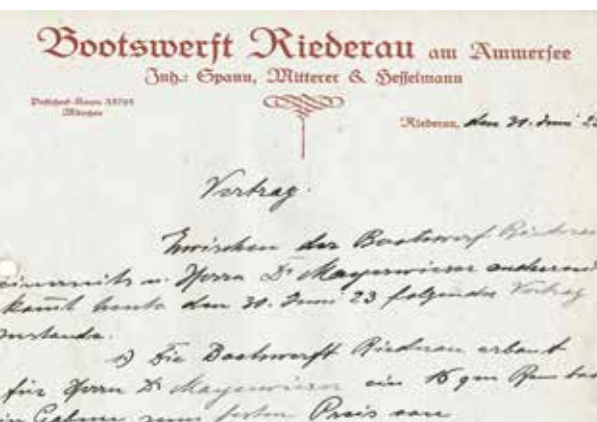 Bootswerft Riederau am Ammersee
Inh.: Spann, Mitterer & Hesselmann
Postscheck-Konto 33705
München
Riederau, den 30. Juni 23
Vertrag.
Zwischen der Bootswerf Riederau
einerseits u. Herrn Dr Mayerwieser anderers
kommt heute den 30. Juni 23 folgender Vertrag
zustande.
1) Die Bootswerft Riederau erbaut
für Herrn Dr Mayerwieser ein 15 qm Rennboot
zum festen Preis von